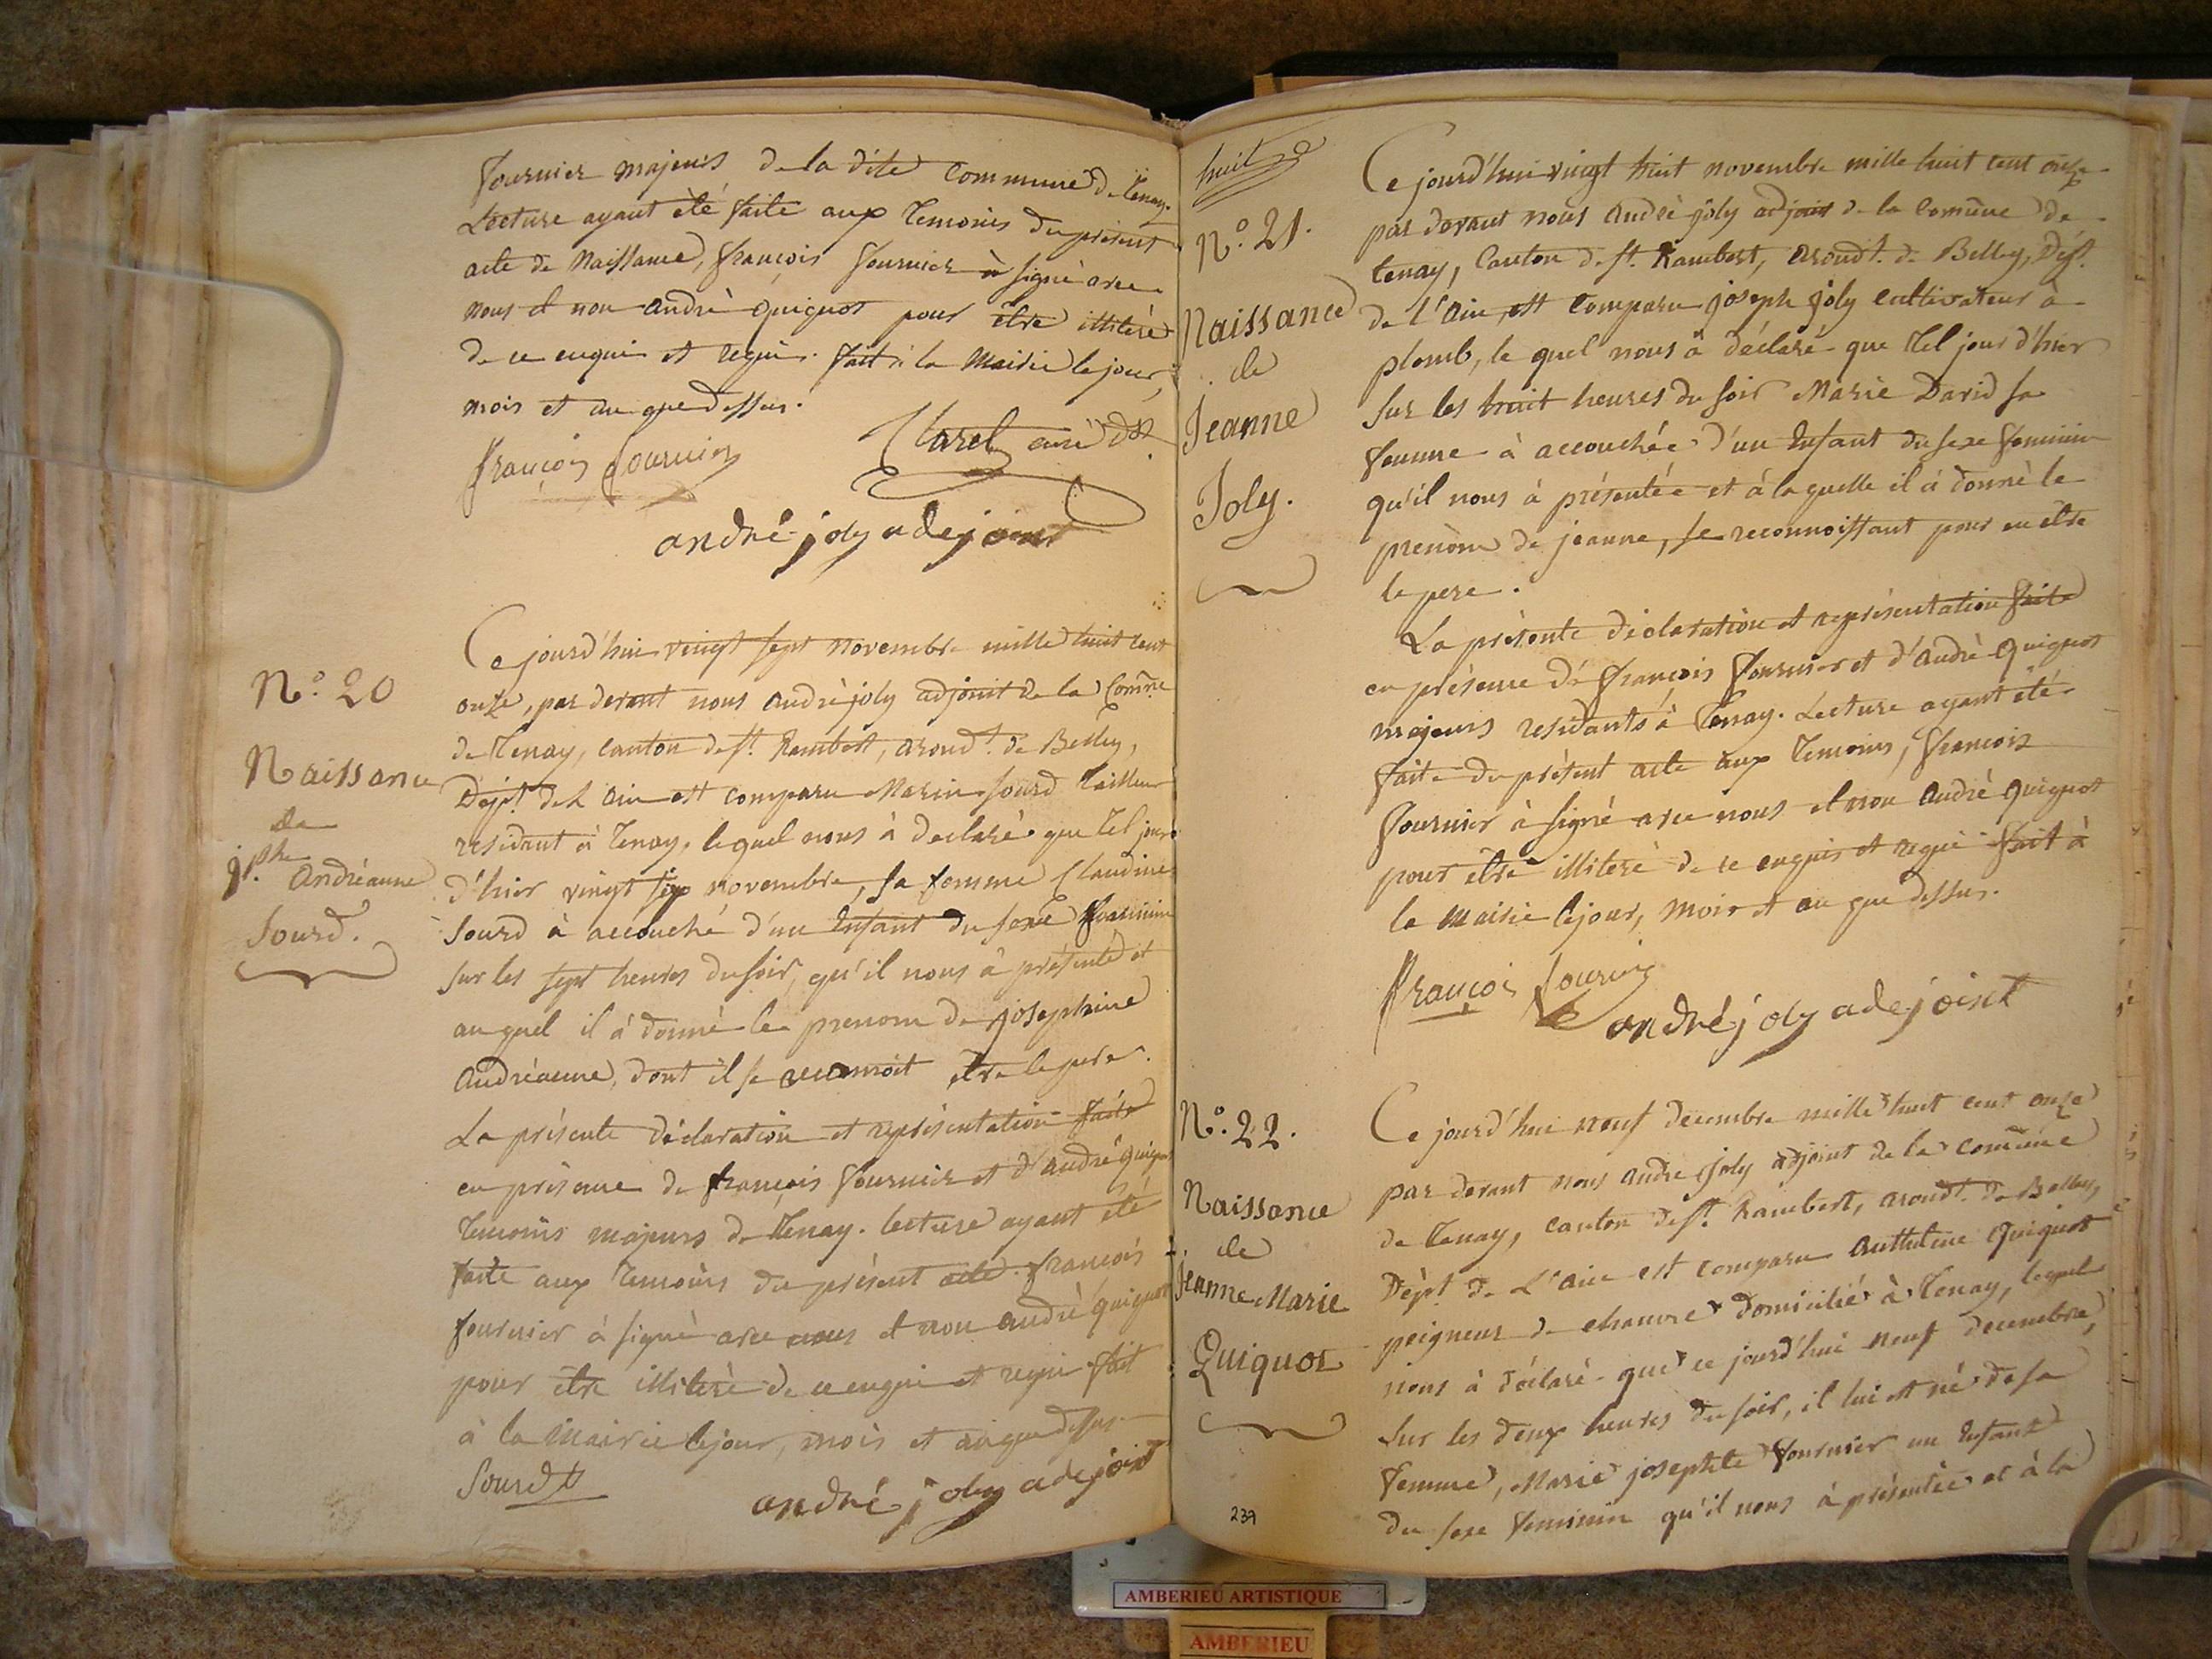 fournier majeurs de la dite commune de tenay.
Lecture ayant été faite aux temoins du présent
acte de Naissance, françois fournier à signé avec
nous et non andré Quiquot pour être illiteré
de ce enquis et requis. fait à la Mairie le jour,
mois et an que dessus.
françois fournier
Clarel curé
andré joly adejoint
N.o 20
Naissance
de
j.phe Andréanne
Sourd.
Ce jourd'hui vingt sept novembre mille huit cent
onze, par devant nous andré joly adjoint de la Comñe
de Tenay, canton de st. Rambert, arond.t de Belley,
Dépt. de L'ain est comparu Marin Sourd tailleur
residant à Tenay, lequel nous à declaré que tel jour
d'hier vingt six novembre, sa femme Claudine
Sourd à accouché d'un Enfant du sexe feminin
sur les sept heures du soir, qu'il nous à présenté et
au quel il à donné le prenom de josephine
Andréanne, dont il se reconnoit être le pere.
La présente déclaration et représentation faite
en présence de françois fournier et d'andré Quiquot
temoins majeurs de Tenay. lecture ayant été
faite aux temoins du présent acte. françois
fournier à signé avec nous et non andré Quiquot
pour être illiteré de ce enquis et requis fait
à la Mairie le jour, mois et an que dessus.
Sourd
andré joly adejoint
huit
N.o 21.
Naissance
de
Jeanne
Joly.
Ce jourd'hui vingt huit novembre mille huit cent onze
par devant nous André joly adjoint de la Comüne de
tenay, Canton de st. Rambert, arond.t de Belley, Dép.t
de l'Ain, est Comparu joseph joly cultivateur à
plomb, le quel nous à déclaré que tel jour d'hier
sur les huit heures du soir Marie David sa
femme à accouchée d'un Enfant du sexe feminin
qu'il nous à présentée et à la quelle il à donné le
prenom de jeanne, se reconnoissant pour en être
le pere.
La présente déclaration et représentation faite
en présence de françois fournier et d'andré Quiquot
majeurs residants à Tenay. Lecture ayant été
faite du présent acte aux temoins, françois
fournier à signé avec nous et non André Quiquot
pour être illiteré de ce enquis et requis fait à
la Mairie le jour, mois et an que dessus.
françois fournier
andré joly adejoint
N.o 22.
Naissance
de
Jeanne Marie
Quiquot
Ce jourd'hui neuf decembre mille huit cent onze
par devant nous andré joly adjoint de la comüne
de Tenay, canton de st. Rambert, arond.t de Belley,
Dépt. de L'ain est comparu Anthelme Quiquot
peigneur de chanvre domicilié à Tenay, lequel
nous à déclaré que ce jourd'hui neuf decembre,
sur les deux heures du soir, il lui est né de sa
femme, Marie josephte fournier un Enfant
du sexe feminin qu'il nous à présentée et à la
239
AMBERIEU ARTISTIQUE
AMBERIEU